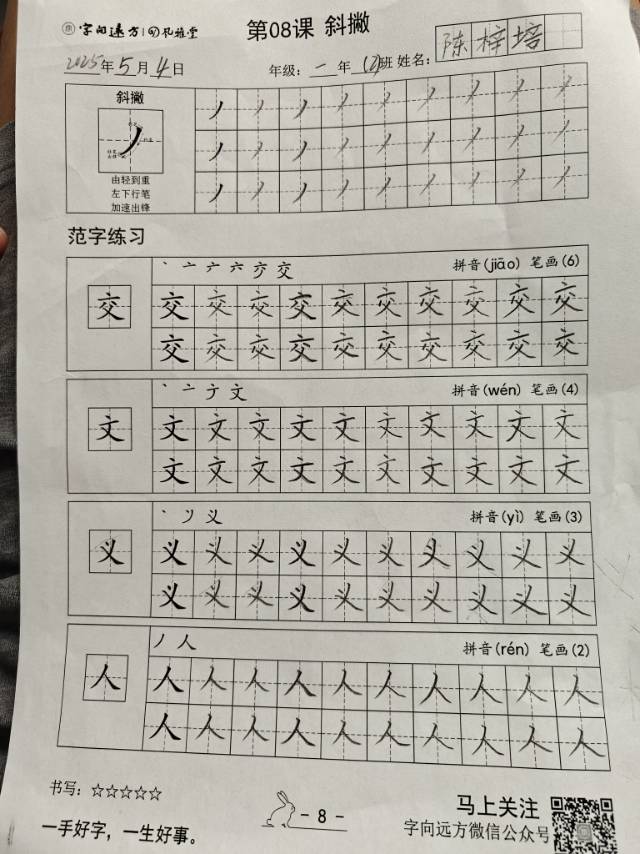 字向远方 孔雅堂 第08课 斜撇
2025年5月4日 年级：一年(2)班 姓名：陈梓培
斜撇
由轻到重
左下行笔
加速出锋
范字练习
丶 亠 六 交 拼音(jiāo) 笔画(6)
交 交 交 交 交 交 交 交 交 交 交
交 交 交 交 交 交 交 交 交 交
丶 亠 文 拼音(wén) 笔画(4)
文 文 文 文 文 文 文 文 文 文 文
文 文 文 文 文 文 文 文 文 文
丶 义 拼音(yì) 笔画(3)
义 义 义 义 义 义 义 义 义 义 义
义 义 义 义 义 义 义 义 义 义
丿 人 拼音(rén) 笔画(2)
人 人 人 人 人 人 人 人 人 人 人
人 人 人 人 人 人 人 人 人 人
书写：☆☆☆☆☆
一手好字，一生好事。
- 8 -
马上关注
字向远方微信公众号